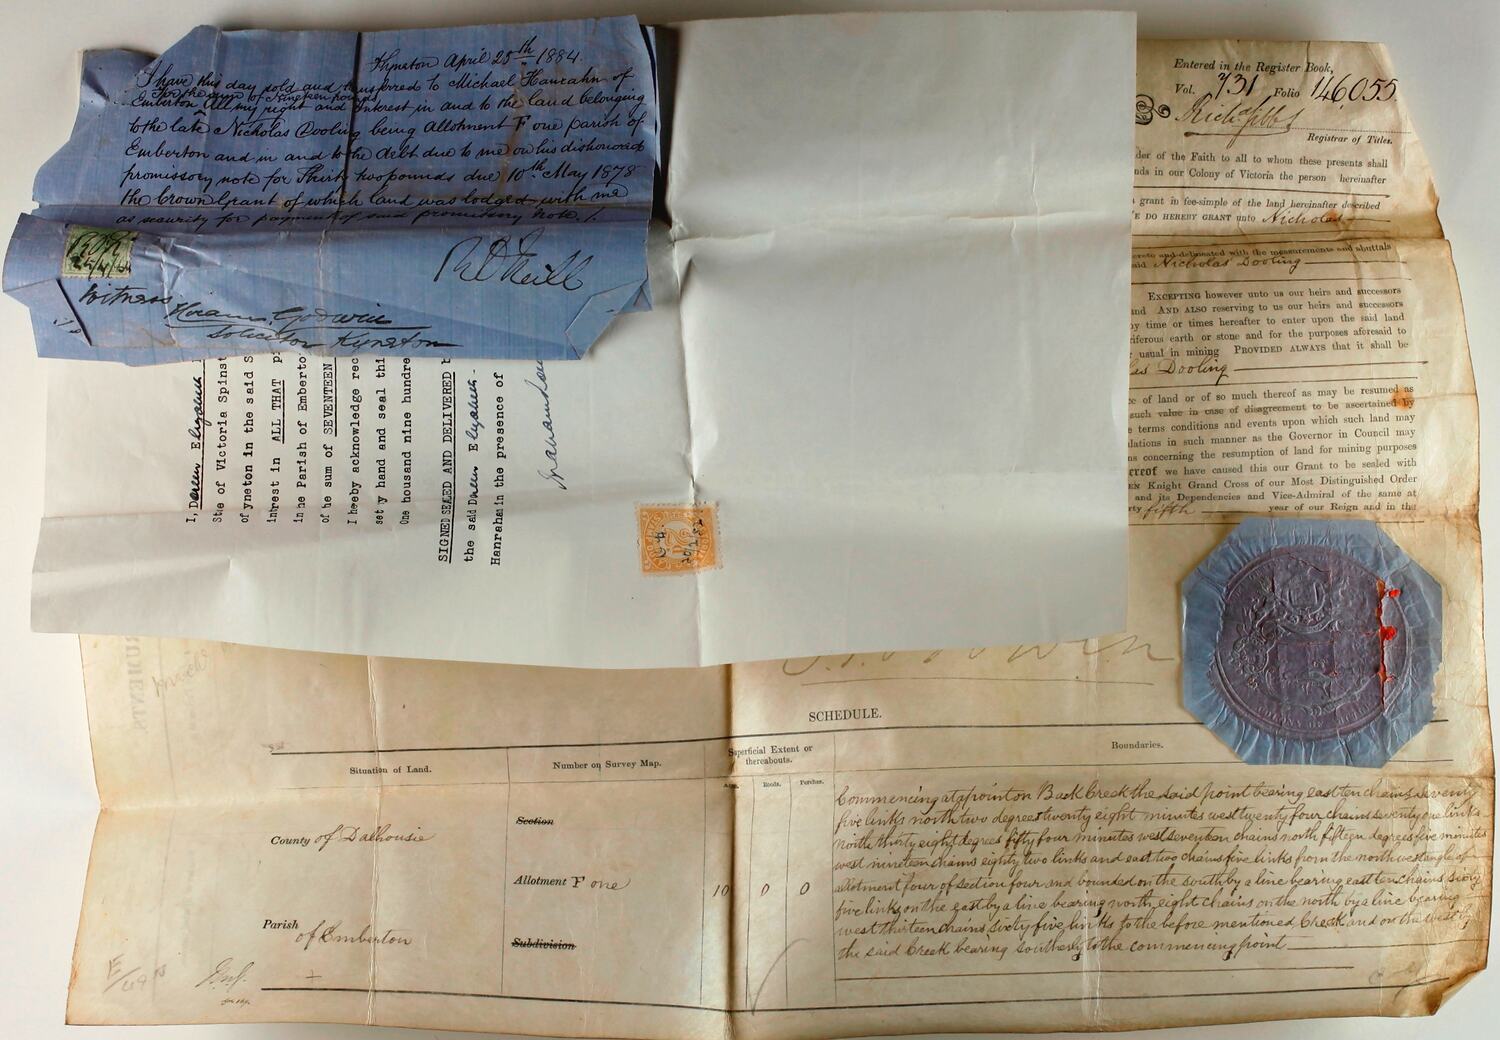 Kyneton April 25th 1884.
I have this day sold and transferred to Michael Hanrahan of
for the sum of Nineteen pounds
Emberton All my right and interest in and to the land belonging
to the late Nicholas Dooling being Allotment F one parish of
Emberton and in and to the debt due to me on his dishonored
promissory note for Thirty two pounds due 10th May 1878
the Crown Grant of which land was lodged with me
as security for payment of said promissory note.
Witness
Hiram Godwin
Solicitor Kyneton
I, Doreen Elizabeth
St te of Victoria Spinst
of yneton in the said S
int rest in ALL THAT p
in he Parish of Emberto
of he sum of SEVENTEEN
I he eby acknowledge rec
set y hand and seal thi
One housand nine hundre
SIGNED SEALED AND DELIVERED
the said Doreen Elizabeth
Hanrahan in the presence of
Entered in the Register Book,
Vol. 731 Folio 146055
Registrar of Titles.
der of the Faith to all to whom these presents shall
nds in our Colony of Victoria the person hereinafter
grant in fee-simple of the land hereinafter described
E DO HEREBY GRANT unto Nicholas
ereto and delineated with the measurements and abuttals
aid Nicholas Dooling
EXCEPTING however unto us our heirs and successors
nd AND ALSO reserving to us our heirs and successors
y time or times hereafter to enter upon the said land
riferous earth or stone and for the purposes aforesaid to
usual in mining PROVIDED ALWAYS that it shall be
las Dooling
ce of land or of so much thereof as may be resumed as
such value in case of disagreement to be ascertained by
e terms conditions and events upon which such land may
lations in such manner as the Governor in Council may
ns concerning the resumption of land for mining purposes
ereof we have caused this our Grant to be sealed with
EN Knight Grand Cross of our Most Distinguished Order
and its Dependencies and Vice-Admiral of the same at
rty fifth year of our Reign and in the
SCHEDULE.
Situation of Land.
Number on Survey Map.
Superficial Extent or thereabouts.
Boundaries.
Roods. Perches.
County of Dalhousie
Parish of Emberton
Section
Allotment F one
Subdivision
10 0 0
Commencing at a point on Back Creek the said point bearing east ten chains seventy
five links north two degrees twenty eight minutes west twenty four chains seventy one links
north thirty eight degrees fifty four minutes west seventeen chains north fifteen degrees five minutes
west nineteen chains eighty two links and east two chains five links from the north west angle of
allotment four of section four and bounded on the south by a line bearing east ten chains sixty
five links on the east by a line bearing north eight chains on the north by a line bearing
west thirteen chains sixty five links to the before mentioned Creek and on the west by
the said Creek bearing southerly to the commencing point